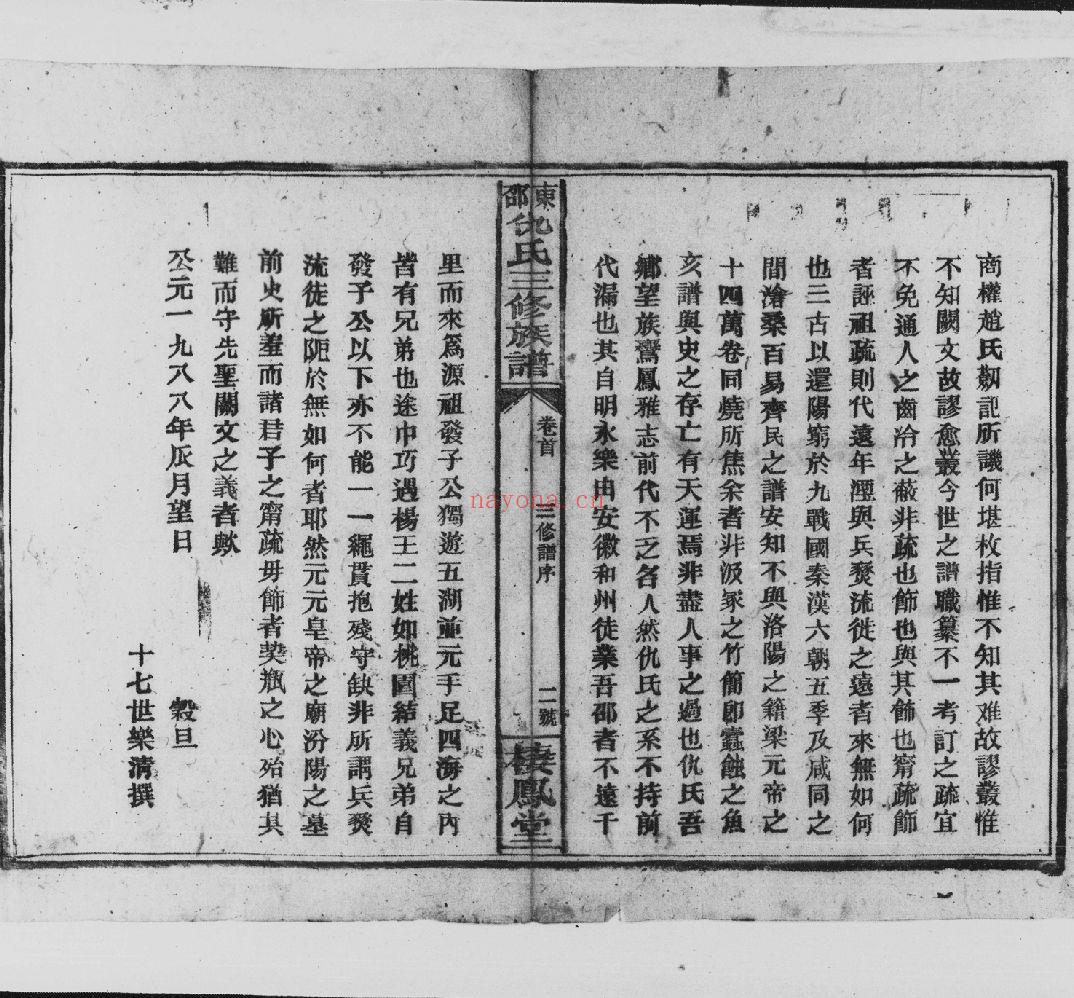 商權趙氏觔記所譏何堪枚指惟不知其难故謬叢惟
不知闕文故謬愈叢今世之譜職纂不一考訂之疏宜
不免通人之齒冷之蔽非疏也飾也與其飾也甯疏飾
者誣祖疏則代遠年湮與兵燹流徙之遠者來無如何
也三古以還陽窮於九戰國秦漢六朝五季及咸同之
間滄桑百易齊民之譜安知不與洛陽之籍梁元帝之
十四萬卷同燒所焦余者非汲冢之竹簡卽蠹蝕之魚
亥譜與史之存亡有天運焉非盡人事之過也仇氏吾
鄉望族鸞鳳雅志前代不乏名人然仇氏之系不持前
代漏也其自明永樂由安徽和州徒業吾邵者不遠千
東邵仇氏三修族譜
卷首
三修譜序
二號
棲鳳堂
里而來爲源祖發子公獨遊五湖並元手足四海之內
皆有兄弟也途中巧遇楊王二姓如桃園結義兄弟自
發子公以下亦不能一一繩貫抱殘守缺非所謂兵燹
流徒之阨於無如何者耶然元元皇帝之廟汾陽之墓
前史所羞而諸君子之甯疏毋飾者契瓶之心殆猶其
難而守先聖闕文之義者歟
公元一九八八年辰月望日
穀旦
十七世樂清撰
nayona.cn